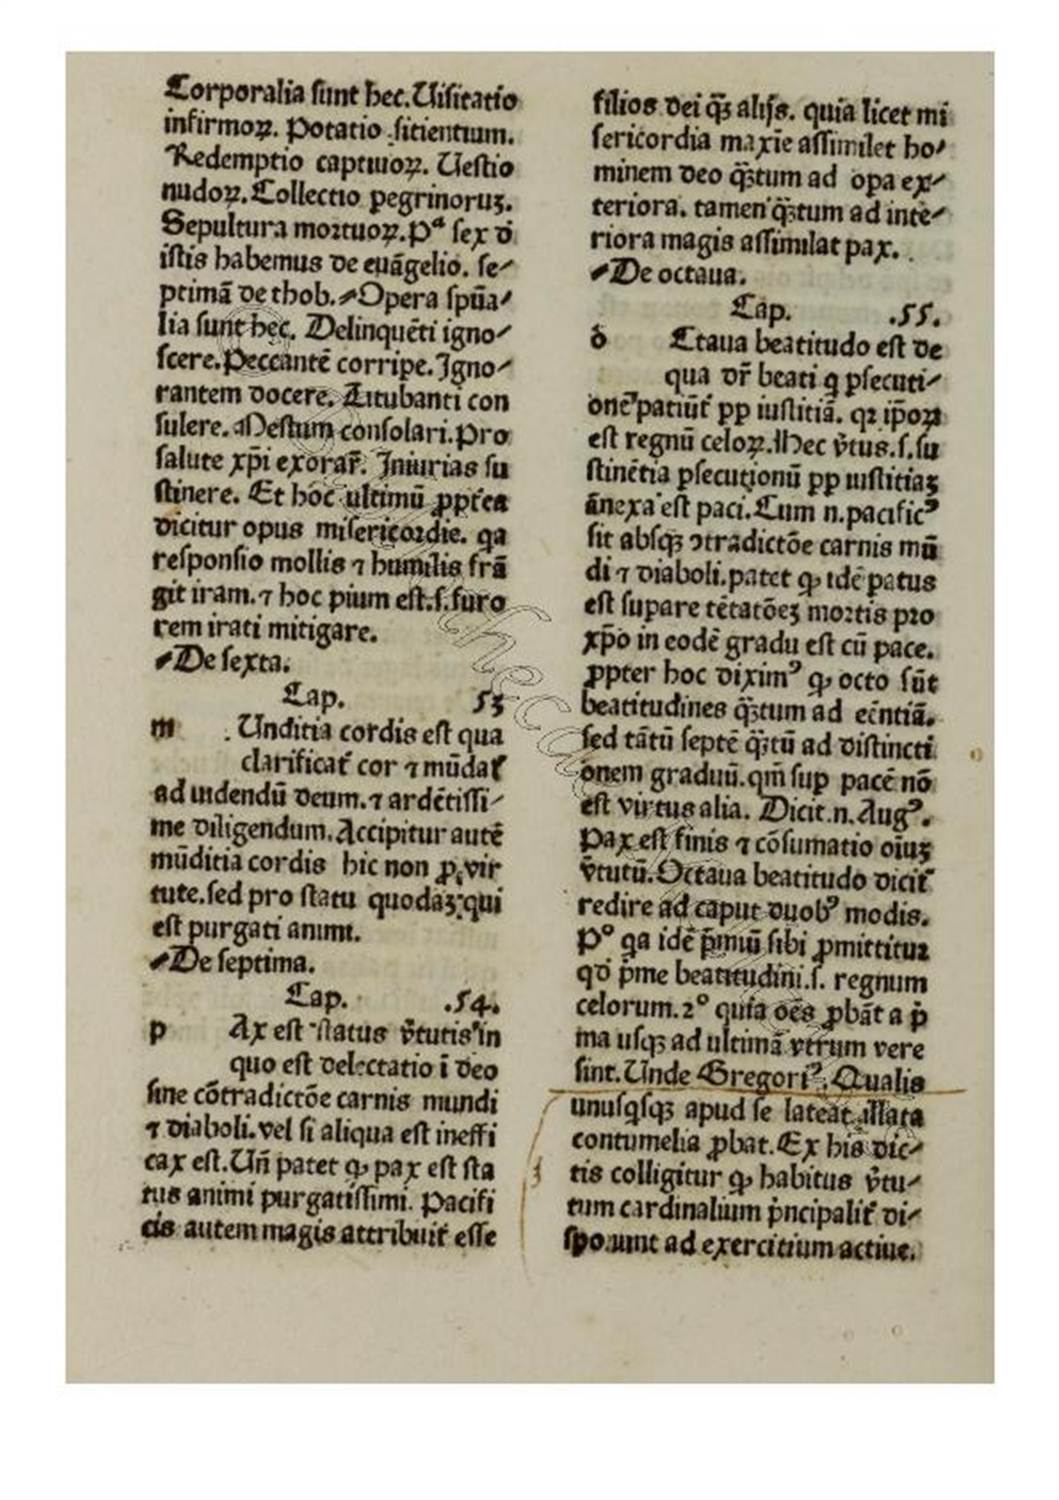 Corporalia sunt hec. Uisitatio
infirmoꝝ. Potatio sitientium.
Redemptio captiuoꝝ. Uestio
nudoꝝ. Collectio pegrinoruꝫ.
Sepultura mortuoꝝ. Pᵃ sex đ
istis habemus de euãgelio. se⸗
ptimã de thob. Opera spũa⸗
lia sunt hec. Delinquẽti igno⸗
scere. Peccantẽ corripe. Igno⸗
rantem docere. Titubanti con
sulere. Mestum consolari. Pro
salute xp̃i exorar̃. Iniurias su
stinere. Et hoc ultimũ ꝓpt̃ea
dicitur opus misericordie. qa
responsio mollis ⁊ humilis frã
git iram. ⁊ hoc pium est. s. furo
rem irati mitigare.
De sexta.
Cap. 53
m Unditia cordis est qua
clarificat̃ cor ⁊ mũdat̃
ad uidendũ deum. ⁊ ardẽtissi⸗
me diligendum. Accipitur autẽ
mũditia cordis hic non ꝓ vir
tute. sed pro statu quodaꝫ qui
est purgati animi.
De septima.
Cap. .54.
p Ax est status ṽtutis in
quo est delectatio ĩ deo
sine cõtradictõe carnis mundi
⁊ diaboli. vel si aliqua est ineffi
cax est. Uñ patet ꝙ pax est sta
tus animi purgatissimi. Pacifi
cis autem magis attribuit̃ esse
filios dei q̃ꝫ alijs. quia licet mi
sericordia maxĩe assimilet ho⸗
minem deo q̃ꝫtum ad opa ex⸗
teriora. tamen q̃ꝫtum ad inte⸗
riora magis assimilat pax.
De octaua.
Cap. .55.
o Ctaua beatitudo est de
qua dr̃ beati q psecuti⸗
onẽ patiũt̃ pp iustitiã. qꝛ ip̃oꝝ
est regnũ celoꝝ. Hec ṽtus. s. su
stinẽtia psecutionũ pp iustitiaꝫ
ãnexa est paci. Cum n. pacificꝰ
sit absqꝫ ↄtradictõe carnis mũ
di ⁊ diaboli. patet ꝙ idẽ patus
est supare tẽtatõeꝫ mortis pro
xp̃o in eodẽ gradu est cũ pace.
ꝓpter hoc diximꝰ ꝙ octo sũt
beatitudines q̃ꝫtum ad eẽntiã.
sed tãtũ septẽ q̃ꝫtũ ad distincti
onem graduũ. qm̃ sup pacẽ nõ
est virtus alia. Dicit. n. Augꝰ.
Pax est finis ⁊ cõsumatio oĩuꝫ
ṽtutũ. Octaua beatitudo dicit̃
redire ad caput duobꝰ modis.
Pᵒ qa idẽ p̃miũ sibi ꝓmittitur
qđ p̃me beatitudini. s. regnum
celorum. 2ᵒ quia oẽs ꝓbãt a p̃
ma usqꝫ ad ultimã vtrum vere
sint. Unde Gregoriꝰ. Qualis
unusqsqꝫ apud se lateat illata
contumelia ꝓbat. Ex his dic⸗
tis colligitur ꝙ habitus ṽtu⸗
tum cardinalium p̃ncipalit̃ di⸗
sponunt ad exercitium actiue.